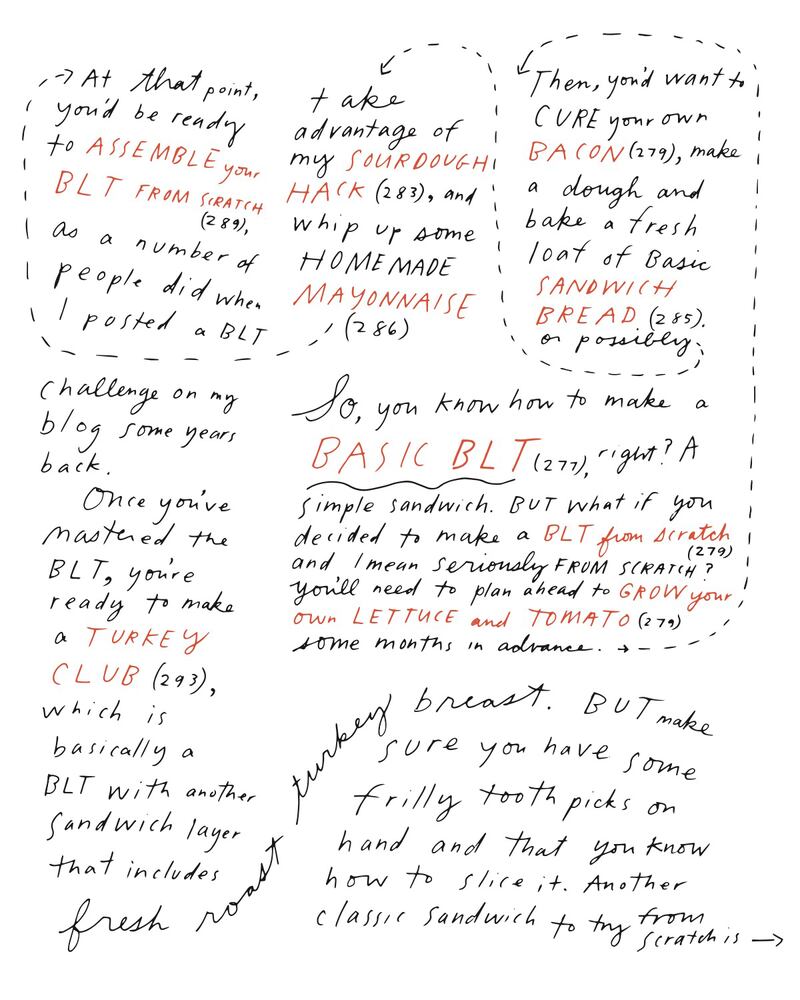 So, you know how to make a
BASIC BLT (277), right? A
simple sandwich. BUT what if you
decided to make a BLT from scratch
(279)
and I mean seriously FROM SCRATCH?
you'll need to plan ahead to GROW your
own LETTUCE and TOMATO (279)
some months in advance. →
Then, you'd want to
CURE your own
BACON (279), make
a dough and
bake a fresh
loaf of Basic
SANDWICH
BREAD (285).
or possibly
take
advantage of
my SOURDOUGH
HACK (283), and
whip up some
HOMEMADE
MAYONNAISE
(286)
→ At that point,
you'd be ready
to ASSEMBLE your
BLT FROM SCRATCH
(289),
as a number of
people did when
I posted a BLT
challenge on my
blog some years
back.
Once you've
mastered the
BLT, you're
ready to make
a TURKEY
CLUB (293),
which is
basically a
BLT with another
sandwich layer
that includes
fresh roast turkey breast. BUT make
sure you have some
frilly toothpicks on
hand and that you know
how to slice it. Another
classic sandwich to try from
scratch is →